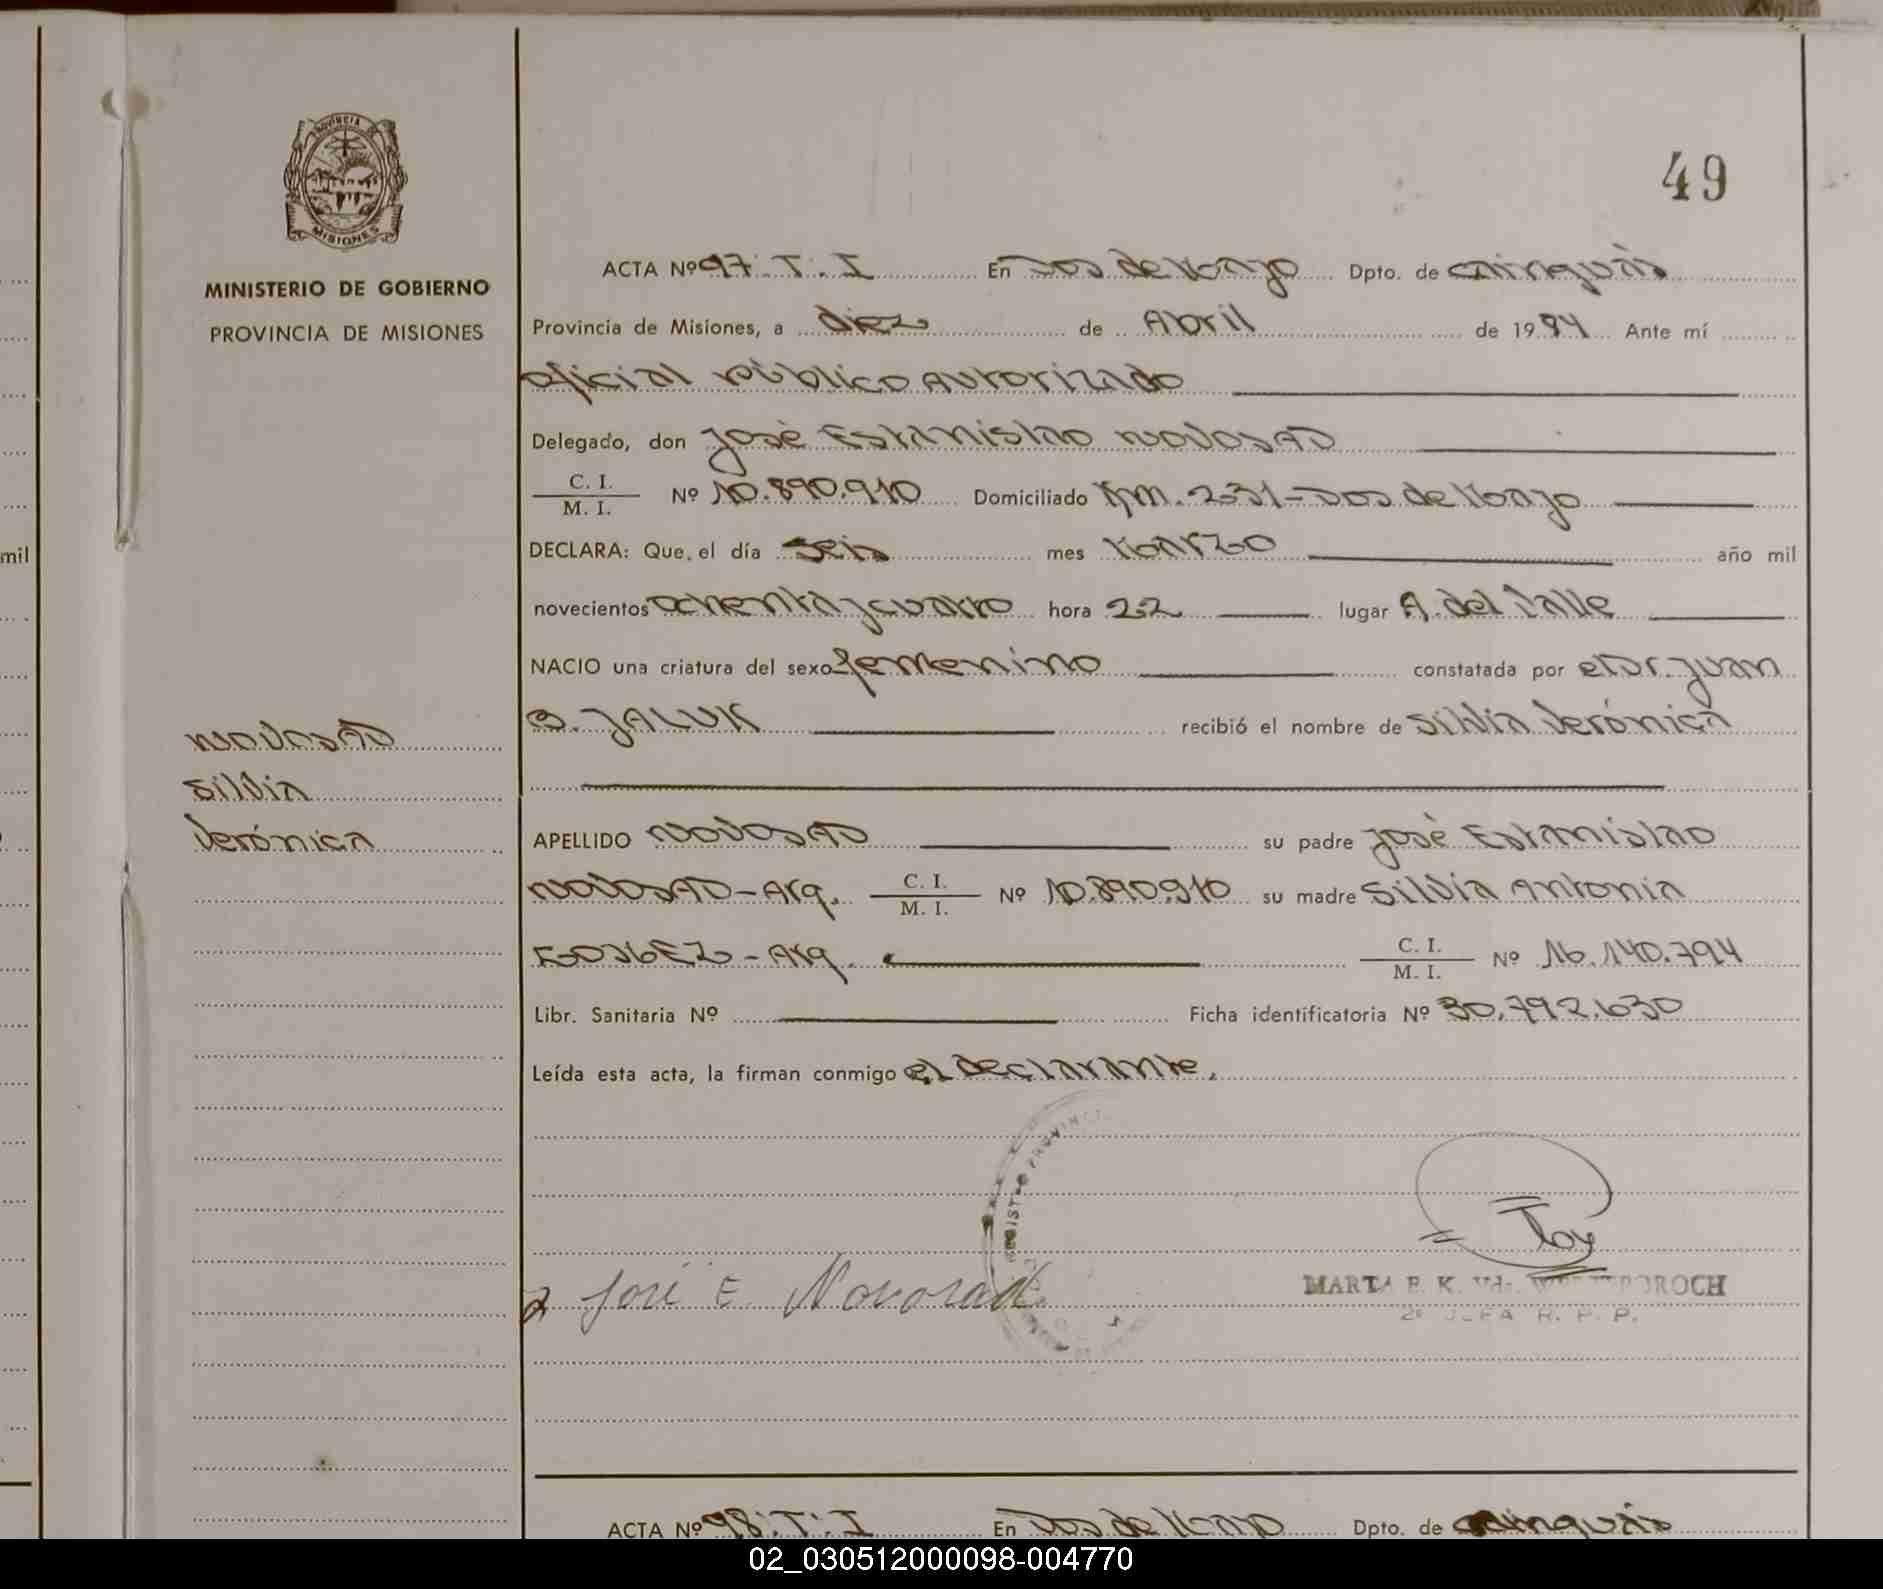 PROVINCIA DE
MISIONES
MINISTERIO DE GOBIERNO
PROVINCIA DE MISIONES
49
ACTA Nº 97: T: I En Dos de Mayo Dpto. de Cainguás
Provincia de Misiones, a diez de Abril de 1984 Ante mí
oficial público Autorizado
Delegado, don José Estanislao NOVOSAD
C. I. / M. I. Nº 10.890.910 Domiciliado Km. 231-Dos de Mayo
DECLARA: Que, el día seis mes Marzo año mil
mil
novecientos ochenta y cuatro hora 22 lugar A. del Valle
NACIO una criatura del sexo femenino constatada por el Dr. Juan
B. JALUK recibió el nombre de Silvia Verónica
NOVOSAD
Silvia
Verónica
APELLIDO NOVOSAD su padre José Estanislao
NOVOSAD-Arg. C. I. / M. I. Nº 10.890.910 su madre Silvia Antonia
-Arg. C. I. / M. I. Nº 16.140.794
Libr. Sanitaria Nº Ficha identificatoria Nº 30.792.630
Leída esta acta, la firman conmigo el declarante.
REGISTRO PROVINC
José E. Novosad
MARTA E. K. Vda.
2º JEFA R. P. P.
ACTA Nº 98: T: I En Dos de Mayo Dpto. de Cainguás
02_030512000098-004770